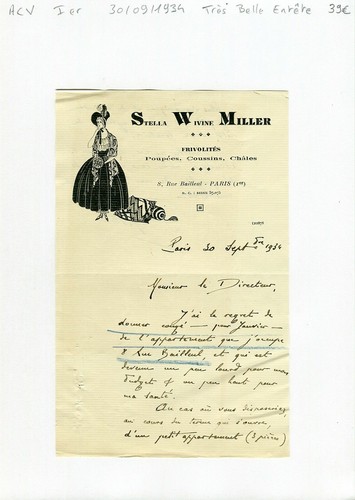 ACV Ier 30/09/1934 Très Belle Entête 39€
STELLA WIVINE MILLER
FRIVOLITÉS
Poupées, Coussins, Châles
8, Rue Bailleul - PARIS (1er)
R. C. : SEINE
Paris 30 Septbre 1934
Monsieur le Directeur,
J'ai le regret de
donner congé – pour Janvier –
de l'appartement que j'occupe
8 Rue Bailleul, et qui est
devenu un peu lourd pour mon
budget & un peu haut pour
ma santé.
Au cas où vous disposeriez,
au cours du terme qui s'ouvre,
d'un petit appartement (3 pièces)